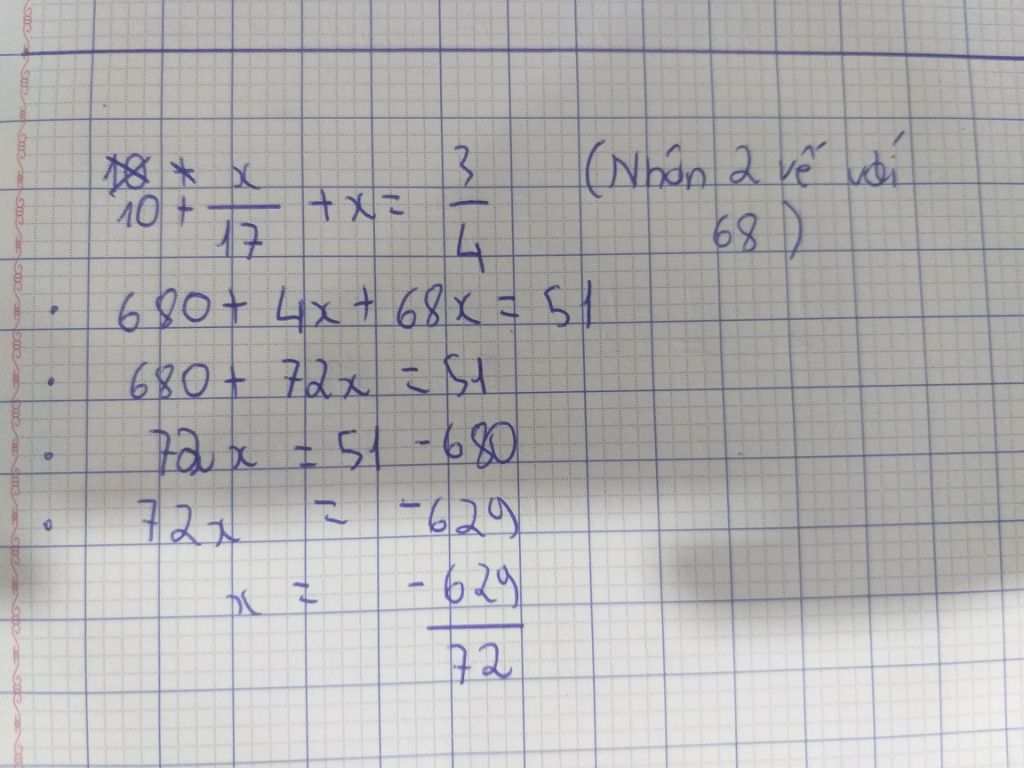 10 + x/17 + x = 3/4 (Nhân 2 vế với 68)
• 680 + 4x + 68x = 51
• 680 + 72x = 51
• 72x = 51 - 680
• 72x = -629
x = -629/72